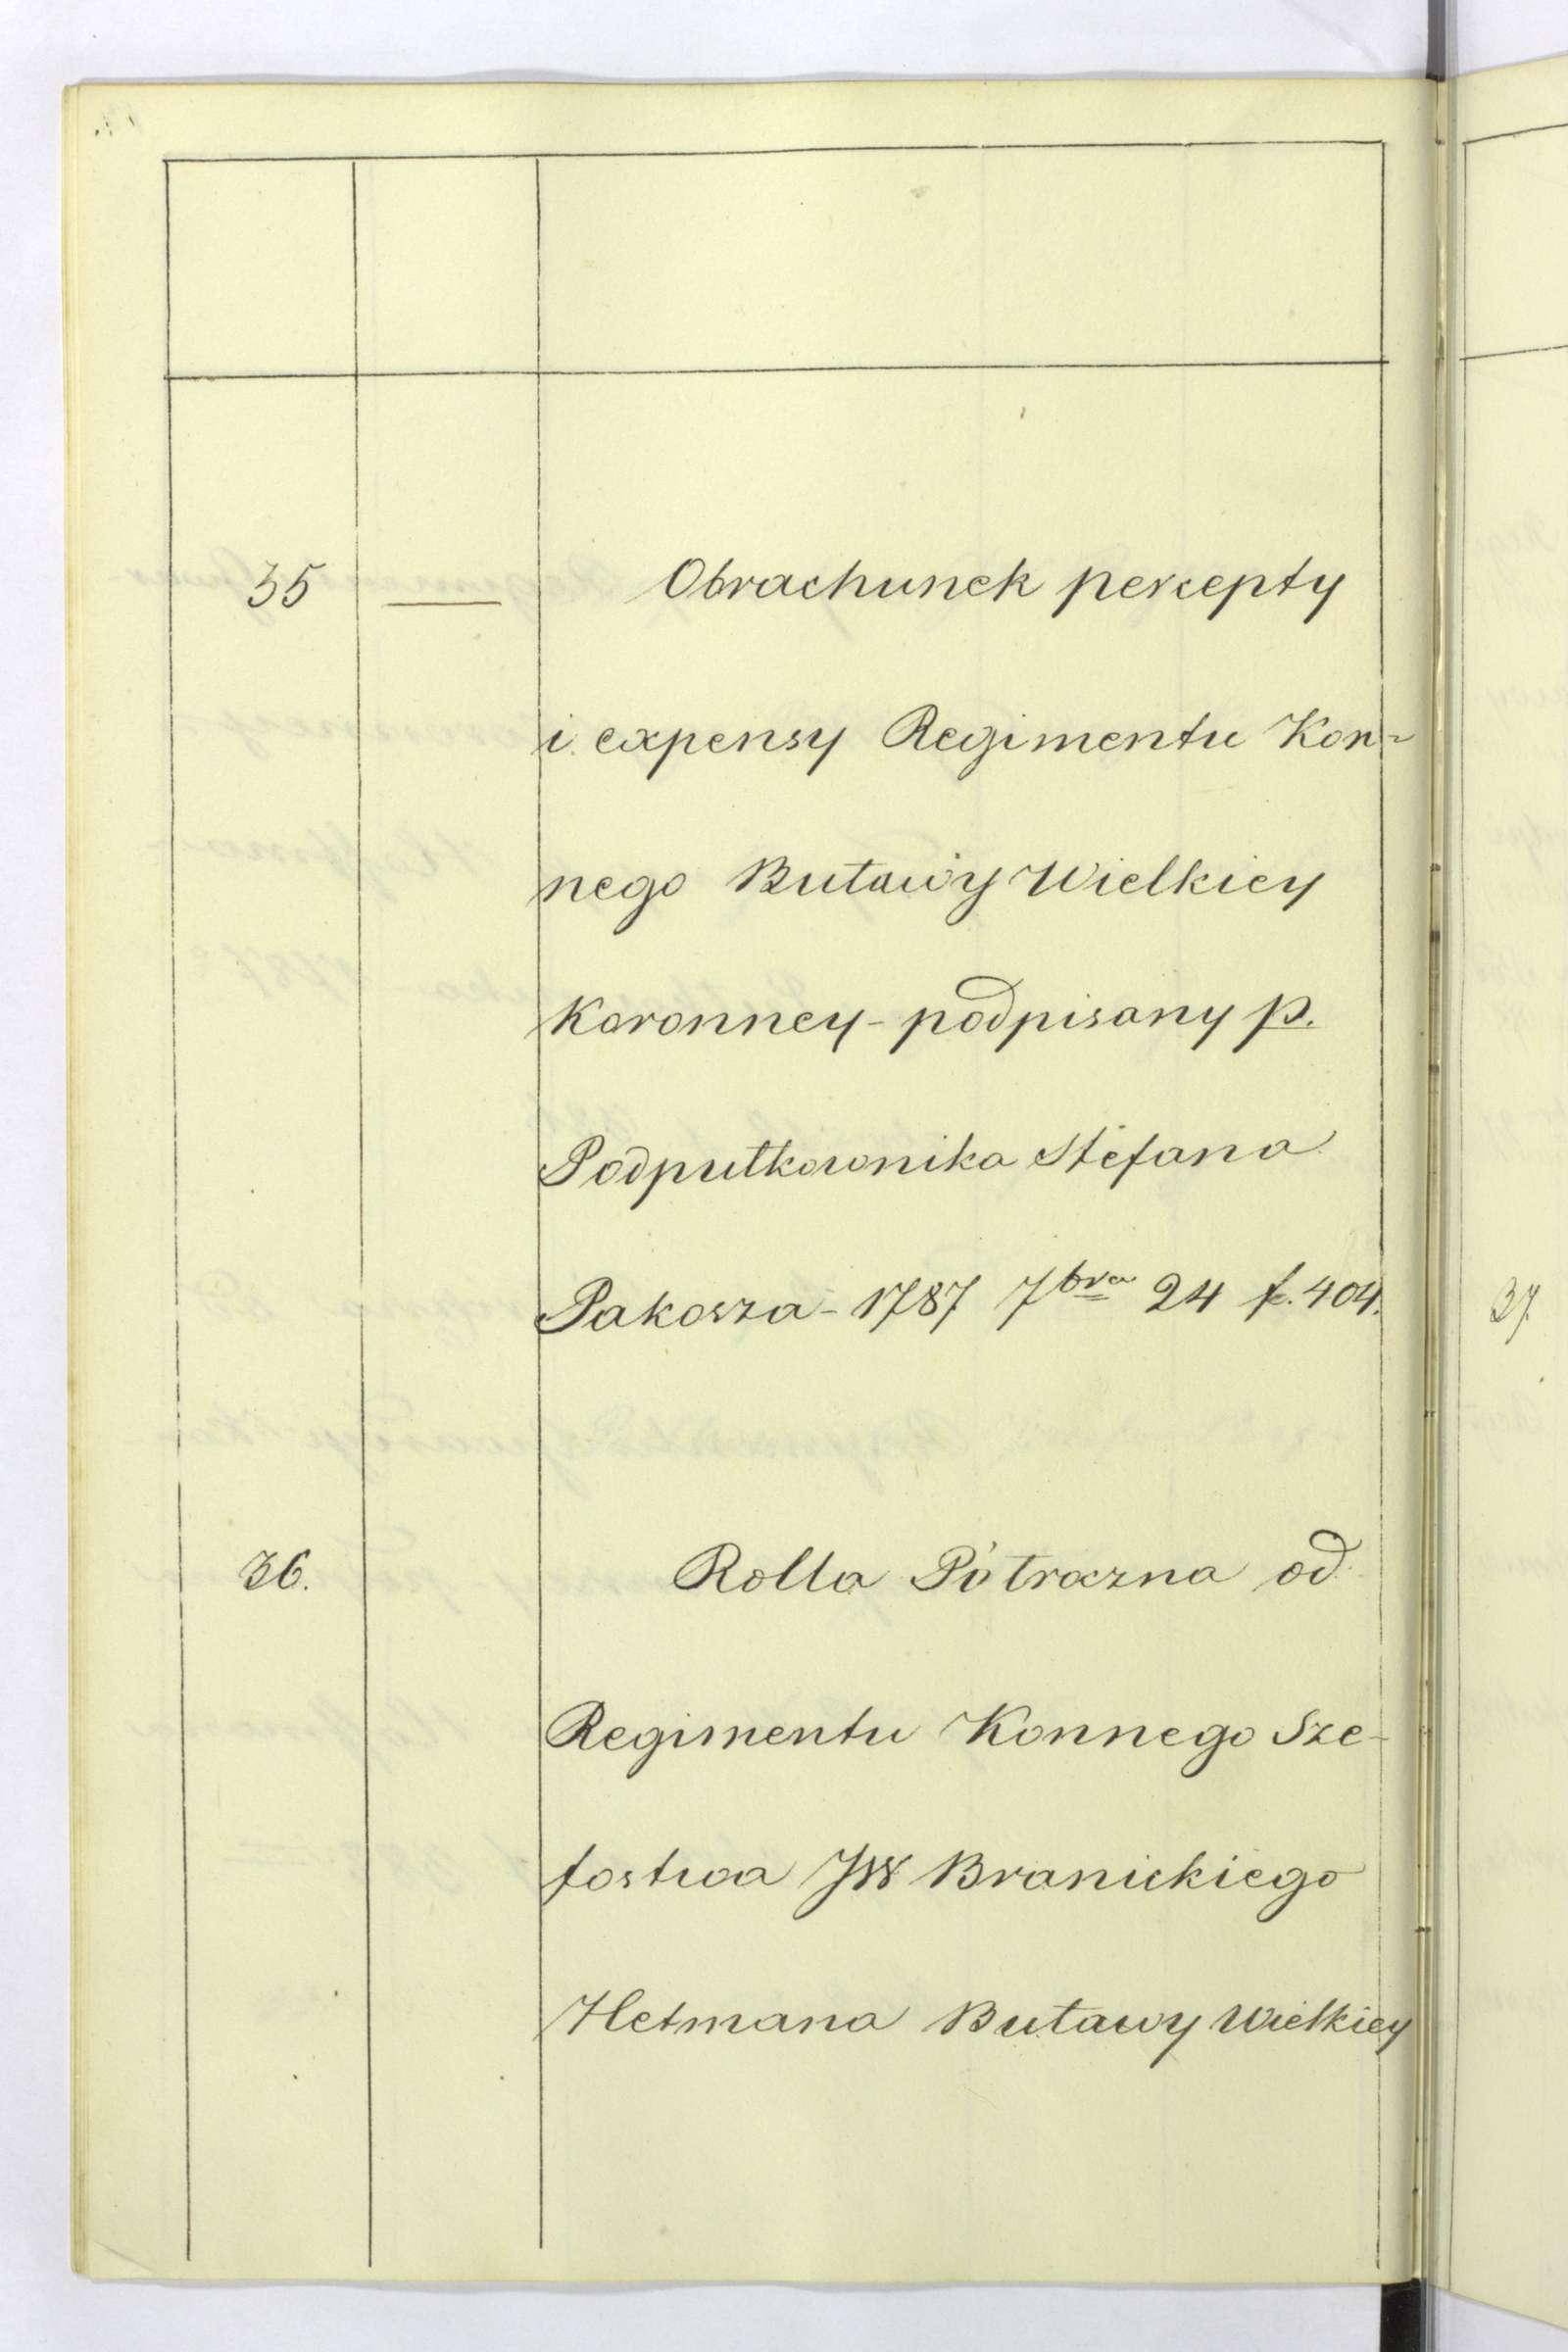 35 — Obrachunek percepty
i expensy Regimentu Kon=
nego Buławy Wielkiey
Koronney - podpisany p.
Podpułkownika Stefana
Pakosza - 1787 7bra 24 f. 404.
36. Rolla Półroczna od
Regimentu Konnego Sze-
fostwa JW Branickiego
Hetmana Buławy Wielkiey
37.